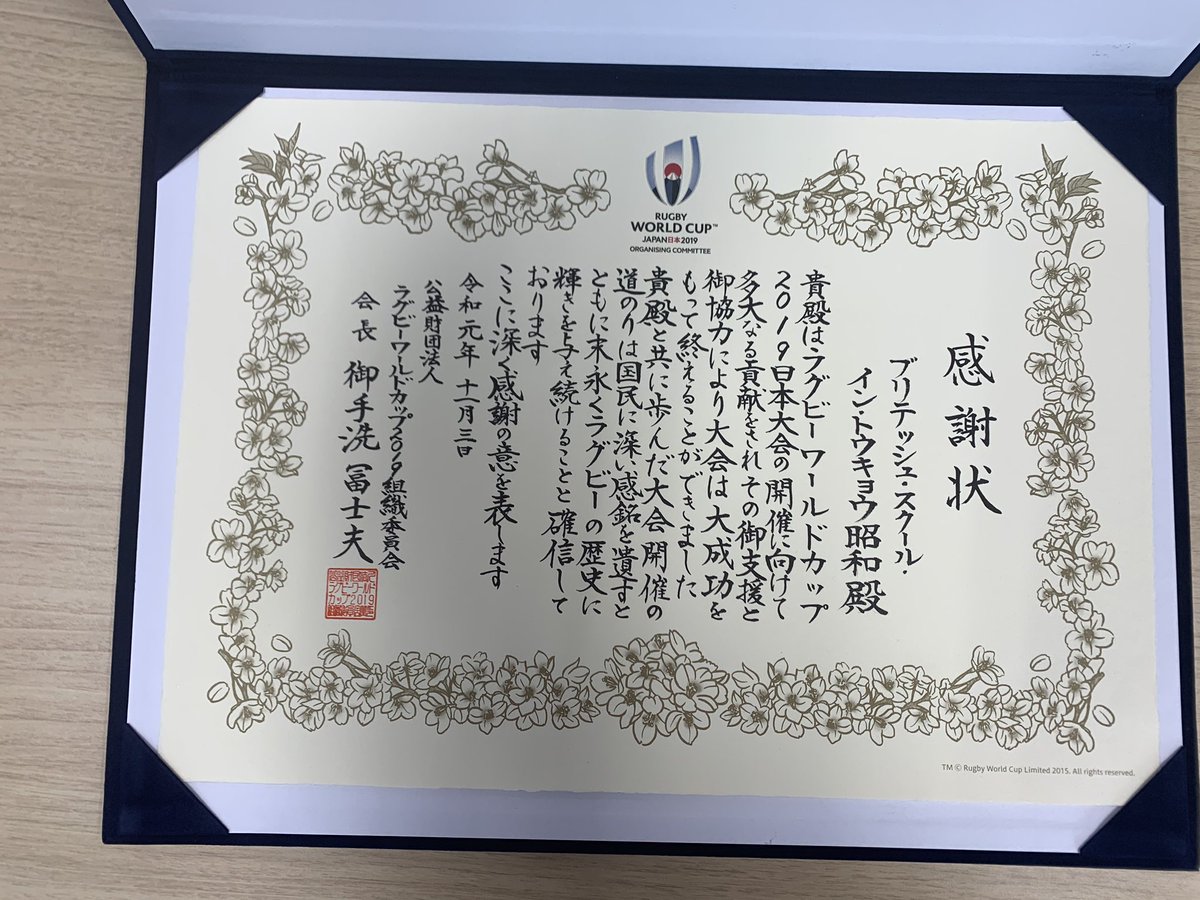 RUGBY
WORLD CUP™
JAPAN日本2019
ORGANISING COMMITTEE
感謝状
ブリテッシュ・スクール・
イン・トウキョウ昭和殿
貴殿はラグビーワールドカップ
2019日本大会の開催に向けて
多大なる貢献をされその御支援と
御協力により大会は大成功を
もって終えることができました
貴殿と共に歩んだ大会開催の
道のりは国民に深い感銘を遺すと
ともに末永くラグビーの歴史に
輝きを与え続けることと確信して
おります
ここに深く感謝の意を表します
令和元年十一月三日
公益財団法人
ラグビーワールドカップ2019組織委員会
会長 御手洗冨士夫
TM © Rugby World Cup Limited 2015. All rights reserved.